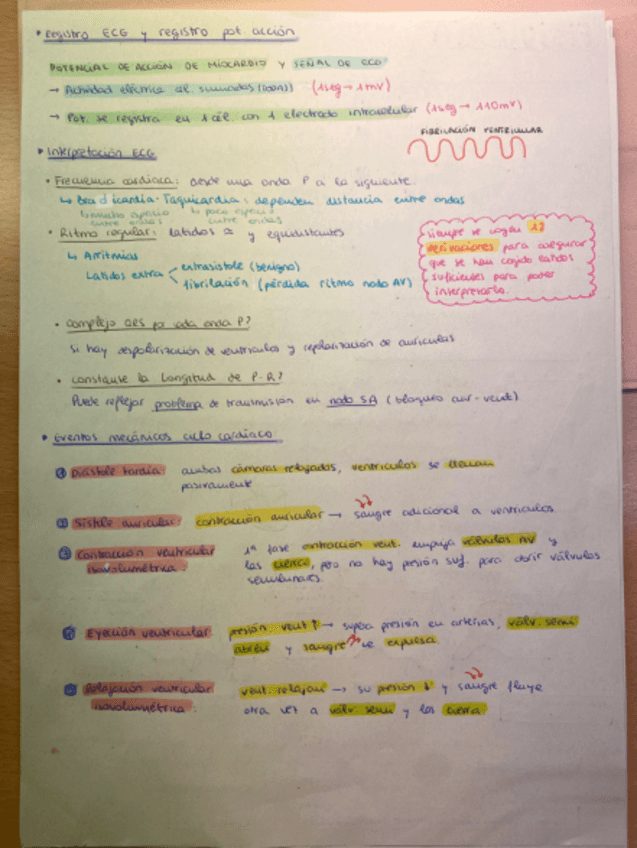 • Registro ECG y registro pot. acción
POTENCIAL DE ACCIÓN DE MIOCARDIO y SEÑAL DE ECG
→ Actividad eléctrica cél. sumadas (1seg → 1mV)
→ Pot. se registra en 1 cél. con 1 electrodo intracelular (1seg → 110mV)
FIBRILACIÓN VENTRICULAR
• Interpretación ECG
• Frecuencia cardiaca: desde una onda P a la siguiente.
↳ Bradicardia-Taquicardia: dependen distancia entre ondas
↳ mucho espacio entre ondas
↳ poco espacio entre ondas
• Ritmo regular: latidos ≃ y equidistantes
↳ Arritmias
Latidos extra
extrasístole (benigno)
fibrilación (pérdida ritmo nodo AV)
siempre se cogen 12
derivaciones para asegurar
que se han cogido latidos
suficientes para poder
interpretarlo.
• Complejo QRS por cada onda P?
Si hay despolarización de ventrículos y repolarización de aurículas
• Constante la longitud de P-R?
Puede reflejar problema de transmisión en nodo SA (bloqueo aur-vent)
• Eventos mecánicos ciclo cardiaco
① Diástole tardía: ambas cámaras relajadas, ventrículos se llenan
pasivamente
② Sístole auricular: contracción auricular → sangre adicional a ventrículos
③ Contracción ventricular 1ª fase contracción vent. empuja válvulas AV y
isovolumétrica: las cierra, pero no hay presión suf. para abrir válvulas
semilunares.
④ Eyección ventricular presión vent ↑ → supera presión en arterias, válv. semi
abren y sangre se expulsa
⑤ Relajación ventricular vent. relajan → su presión ↓ y sangre fluye
isovolumétrica: otra vez a válv. semi y las cierra